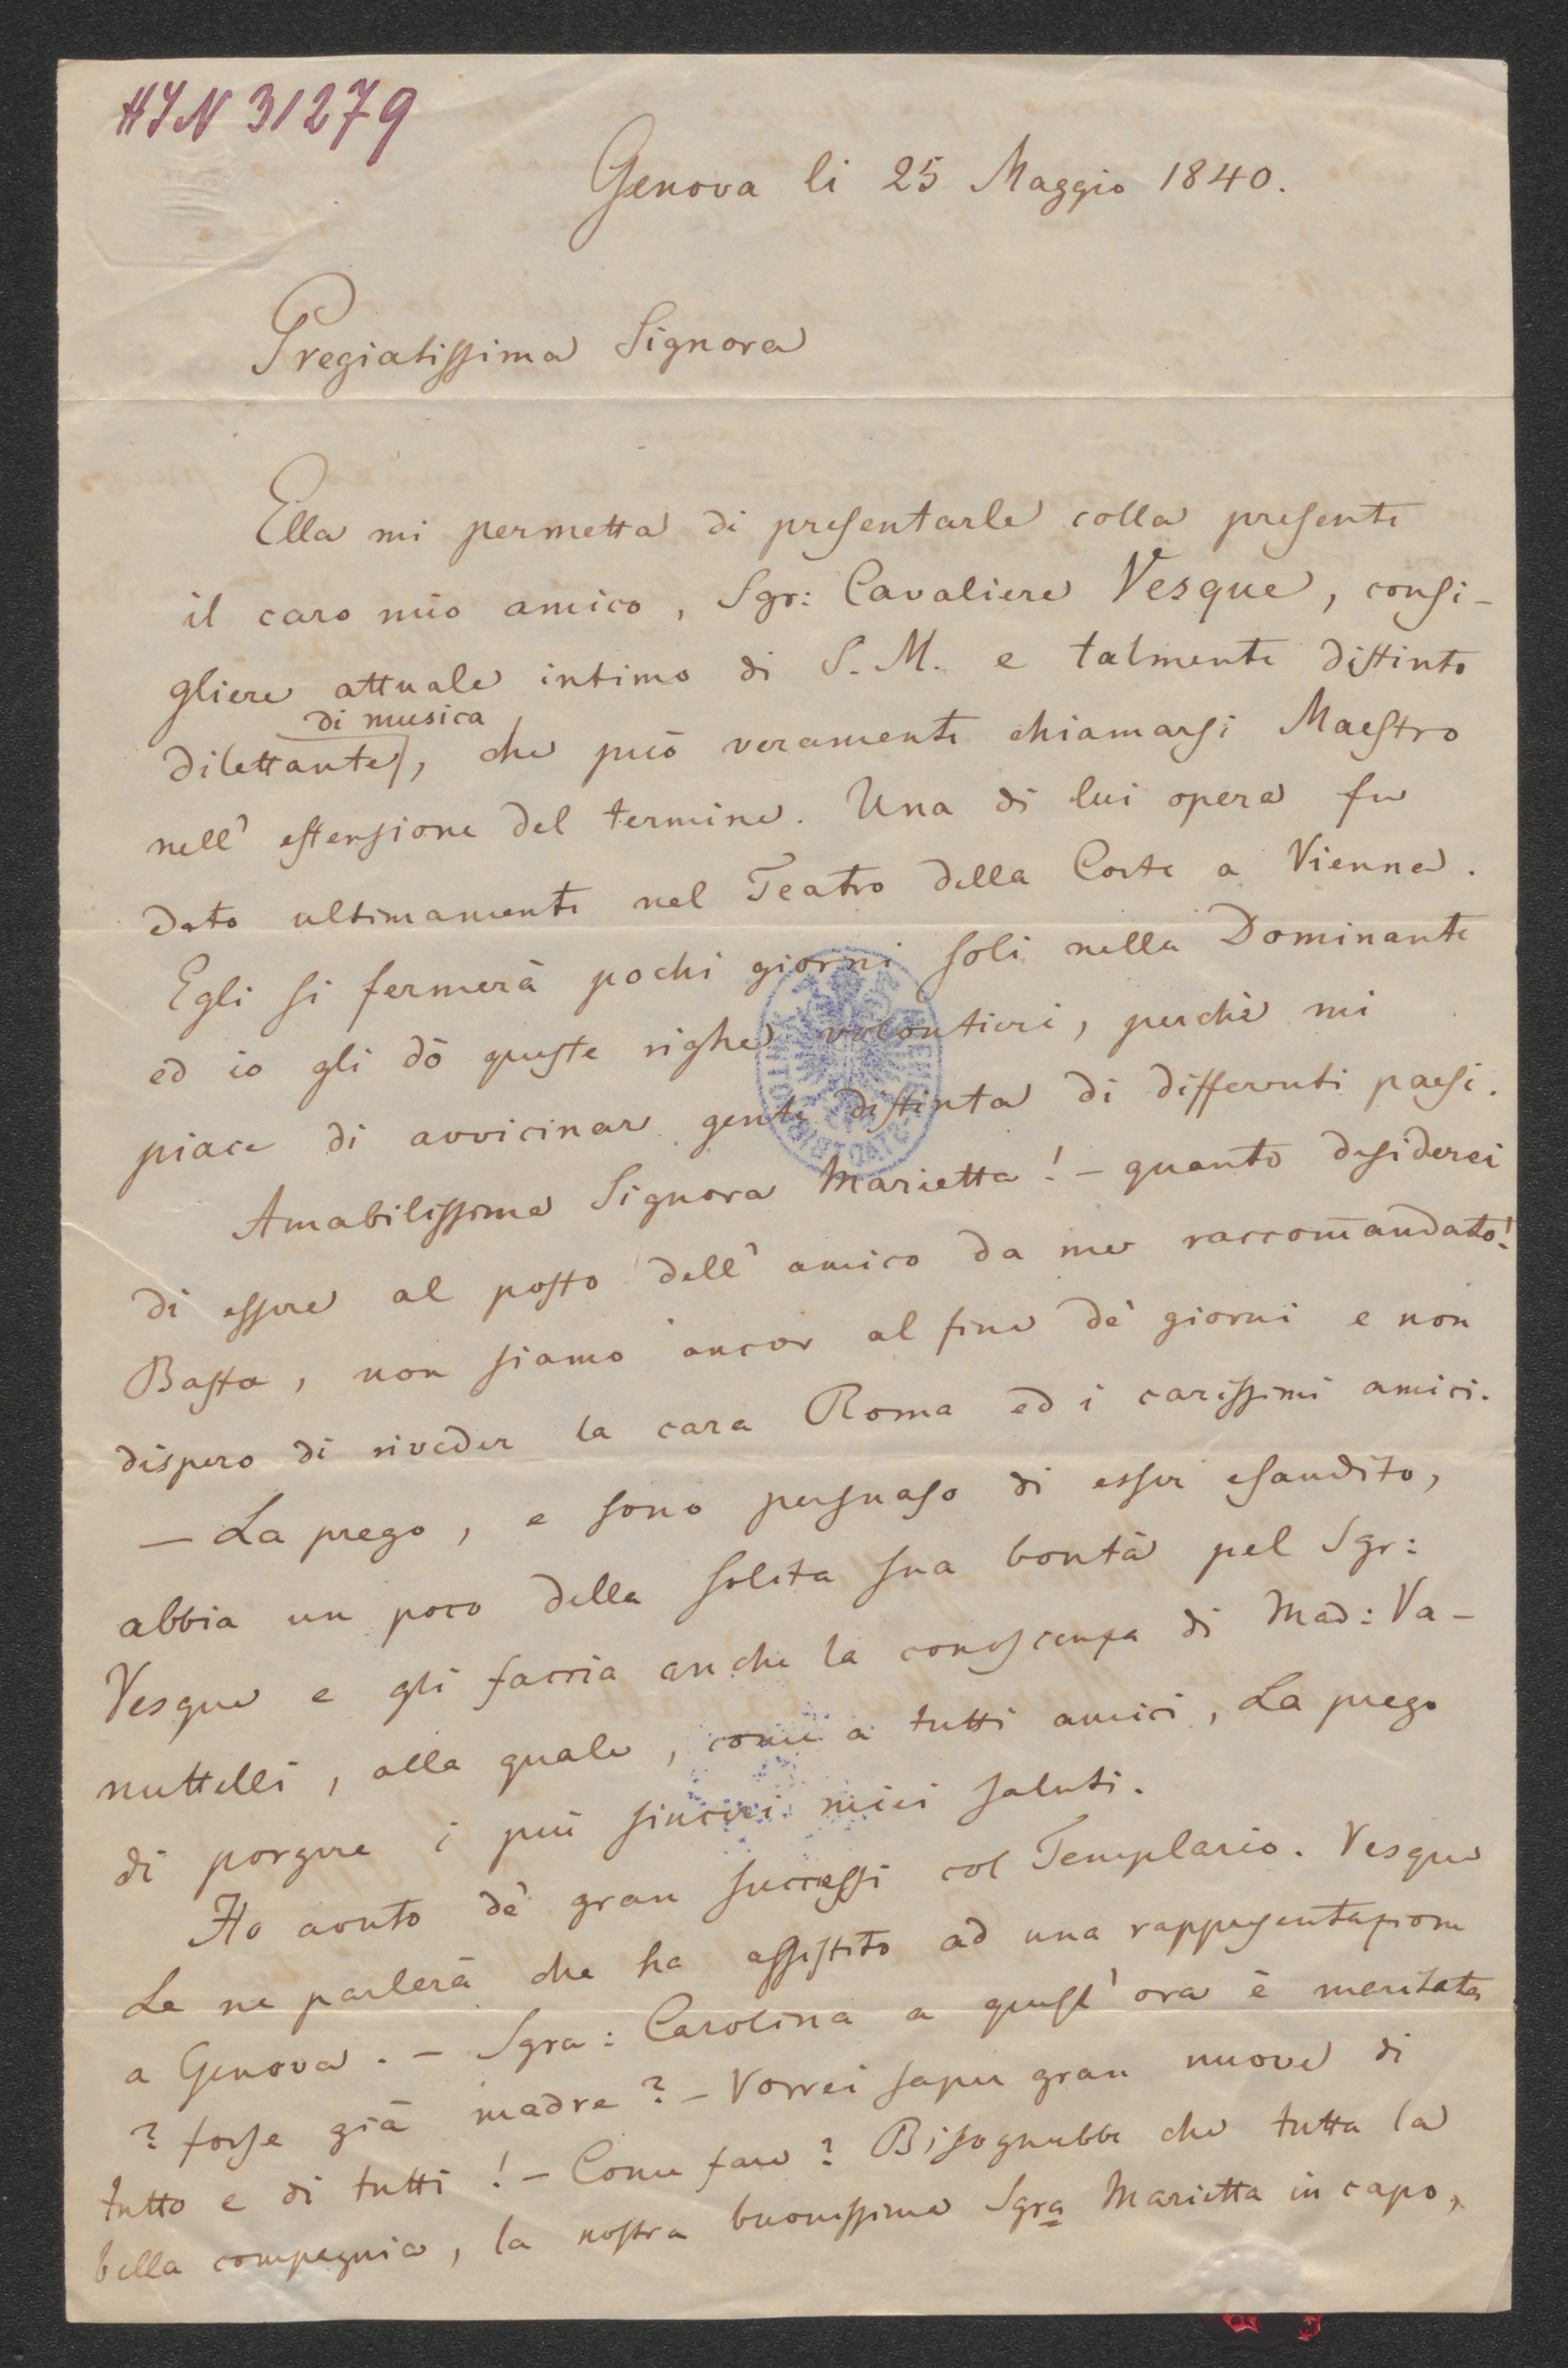 HIN 31279
Genova li 25 Maggio 1840.
Pregiatissima Signora
Ella mi permetta di presentarle colla presente
il caro mio amico, Sgr: Cavaliere Vesque, consi-
gliere attuale intimo di S. M. e talmente distinto
di musica
dilettante, che può veramente chiamarsi Maestro
nell' estensione del termine. Una di lui opera fu
dato ultimamente nel Teatro della Corte a Vienna.
Egli si fermerà pochi giorni soli nella Dominante
ed io gli dò queste righe volontieri, perchè mi
piace di avvicinar gente distinta di differenti paesi.
Amabilissima Signora Marietta! – quanto desiderei
di essere al posto dell' amico da me raccom̄andato!
Basta, non siamo ancor al fine de' giorni e non
dispero di riveder la cara Roma ed i carissimi amici.
– La prego, e sono persuaso di esser esaudito,
abbia un poco della solita sua bontà pel Sgr:
Vesque e gli faccia anche la conoscenza di Mad: Va-
nuttelli, alla quale, come a tutti amici, La prego
di porgere i più sinceri miei saluti.
Ho avuto de' gran successi col Templario. Vesque
Le ne parlerà che ha assistito ad una rappresentazione
a Genova. – Sgra: Carolina a quest' ora è maritata
? forse già madre? – Vorrei saper gran nuove di
tutto e di tutti! – Come fare? Bisognerebbe che tutta la
bella compagnia, la nostra buonissima Sgra Marietta in capo,